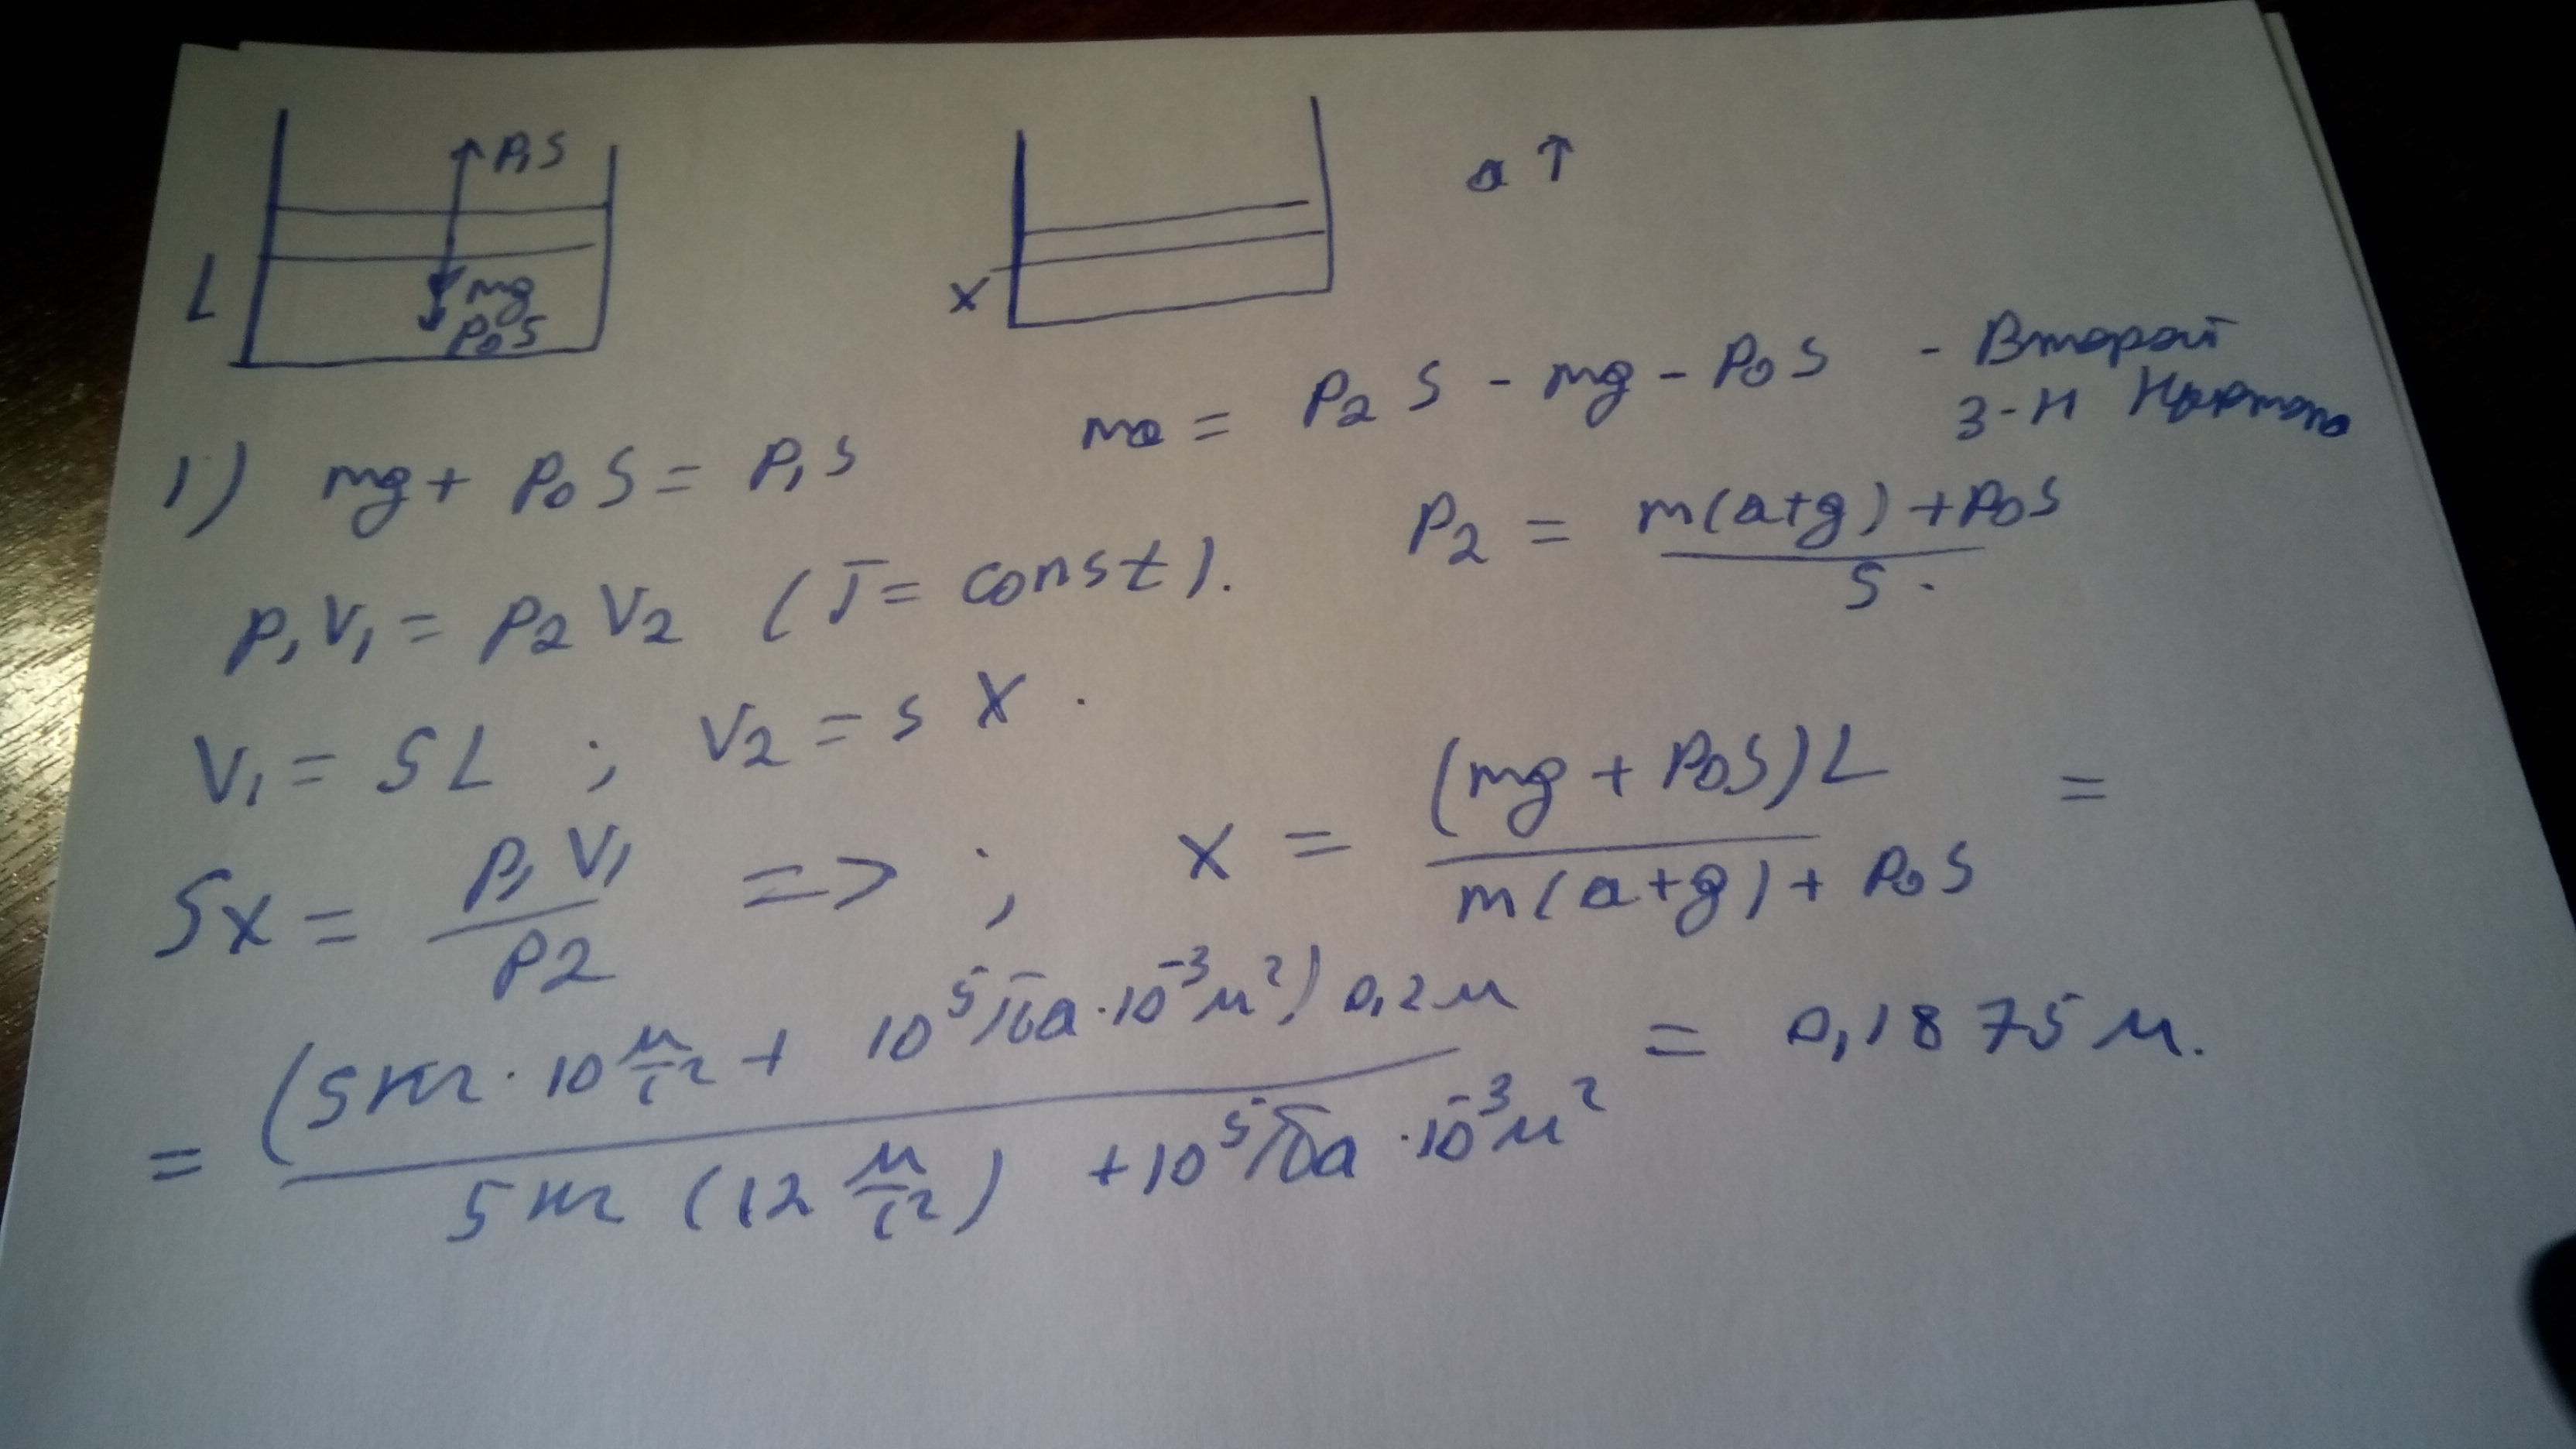 P₁S
a ↑
L
mg
P₀S
x
ma = P₂S - mg - P₀S - Второй
з-н Ньютона
1) mg + P₀S = P₁S
P₂ = (m(a+g) + P₀S) / S.
P₁V₁ = P₂V₂ (T = const).
V₁ = SL ; V₂ = Sx.
Sx = P₁V₁ / P₂ => ; x = (mg + P₀S)L / (m(a+g) + P₀S) =
= (5кг · 10 м/с² + 10⁵ Па · 10⁻³ м²) 0,2м / (5кг (12 м/с²) + 10⁵ Па · 10⁻³ м²) = 0,1875м.